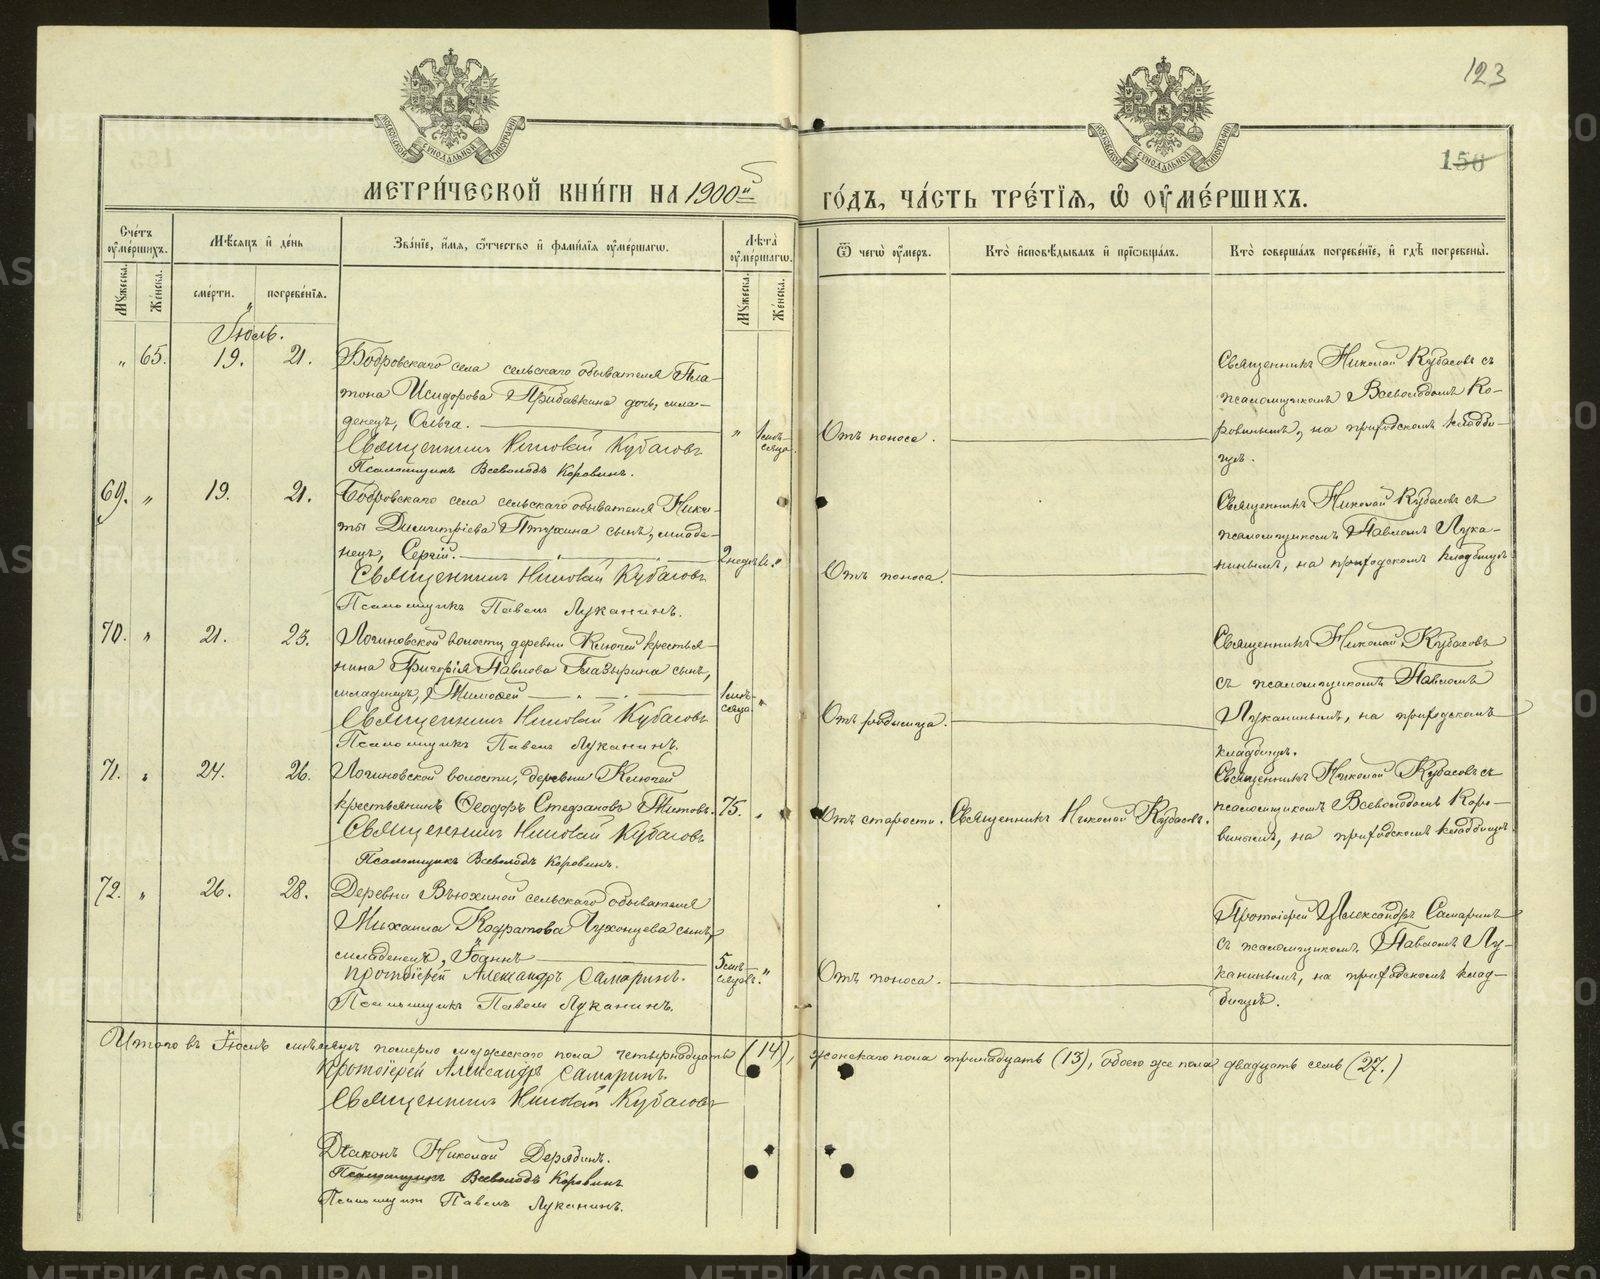 123
150
МОСКОВСКОЙ СѴНОДАЛЬНОЙ ТИПОГРАФІИ
МОСКОВСКОЙ СѴНОДАЛЬНОЙ ТИПОГРАФІИ
МЕТРИ́ЧЕСКОЙ КНИ́ГИ НА 1900й ГО́ДЪ, ЧА́СТЬ ТРЕ́ТІѦ, Ѡ҆ ОУ҆МЕ́РШИХЪ.
Сче́тъ оу҆ме́ршихъ.
Мѣ́сяцъ и҆ де́нь
Зва́нїе, и҆́мя, ѻ҆́тчество и҆ фами́лїя оу҆ме́ршагѡ.
Лѣ́та оу҆ме́ршагѡ.
Ѿ чегѡ̀ оу҆́меръ.
Кто̀ и҆сповѣ́дывалъ и҆ прїѡбща́лъ.
Кто̀ соверша́лъ погребе́нїе, и҆ гдѣ̀ погребены̀.
Мꙋ́жеска.
Же́нска.
сме́рти.
погребе́нїя.
Мꙋ́жеска.
Же́нска.
Іюль.
" 65. 19. 21.
Бобровскаго села сельскаго обывателя Пла-
тона Исидорова Прибавкина дочь, мла-
денецъ, Ольга.
Священникъ Николай Кубасовъ
Псаломщикъ Всеволодъ Коровинъ.
" 1 мѣ-
сяца.
Отъ поноса.
Священникъ Николай Кубасовъ съ
псаломщикомъ Всеволодомъ Ко-
ровинымъ, на приходскомъ кладби-
щѣ.
69. " 19. 21.
Бобровскаго села сельскаго обывателя Ники-
ты Димитріева Птухина сынъ, младе-
нецъ, Сергій.
Священникъ Николай Кубасовъ
Псаломщикъ Павелъ Луканинъ.
2 недѣль. "
Отъ поноса.
Священникъ Николай Кубасовъ съ
псаломщикомъ Павломъ Лука-
нинымъ, на приходскомъ кладбищѣ
70. " 21. 23.
Логиновской волости деревни Ключей крестья-
нина Григорія Павлова Глазырина сынъ,
младенецъ, Тимоѳей
Священникъ Николай Кубасовъ
Псаломщикъ Павелъ Луканинъ.
1 мѣ-
сяца. "
Отъ родимца.
Священникъ Николай Кубасовъ
съ псаломщикомъ Павломъ
Луканинымъ, на приходскомъ
кладбищѣ.
71. " 24. 26.
Логиновской волости, деревни Ключей
крестьянинъ Ѳеодоръ Стефановъ Титовъ.
Священникъ Николай Кубасовъ
Псаломщикъ Всеволодъ Коровинъ.
75. "
Отъ старости.
Священникъ Николай Кубасовъ.
Священникъ Николай Кубасовъ съ
псаломщикомъ Всеволодомъ Коро-
винымъ, на приходскомъ кладбищѣ.
72. " 26. 28.
Деревни Вьюхиной сельскаго обывателя
Михаила Кодратова Чухонцева сынъ,
младенецъ, Іоаннъ
Протоіерей Александръ Самаринъ.
Псаломщикъ Павелъ Луканинъ.
5 мѣ-
сяцевъ. "
Отъ поноса.
Протоіерей Александръ Самаринъ
съ псаломщикомъ Павломъ Лу-
канинымъ, на приходскомъ клад-
бищѣ.
Итого въ Іюлѣ мѣсяцѣ померло мужескаго пола четырнадцать (14), женскаго пола тринадцать (13), обоего же пола двадцать семь (27.)
Протоіерей Александръ Самаринъ.
Священникъ Николай Кубасовъ
Діаконъ Николай Дерябинъ.
Псаломщикъ Всеволодъ Коровинъ
Псаломщикъ Павелъ Луканинъ.
METRIKI.GASO-URAL.RU